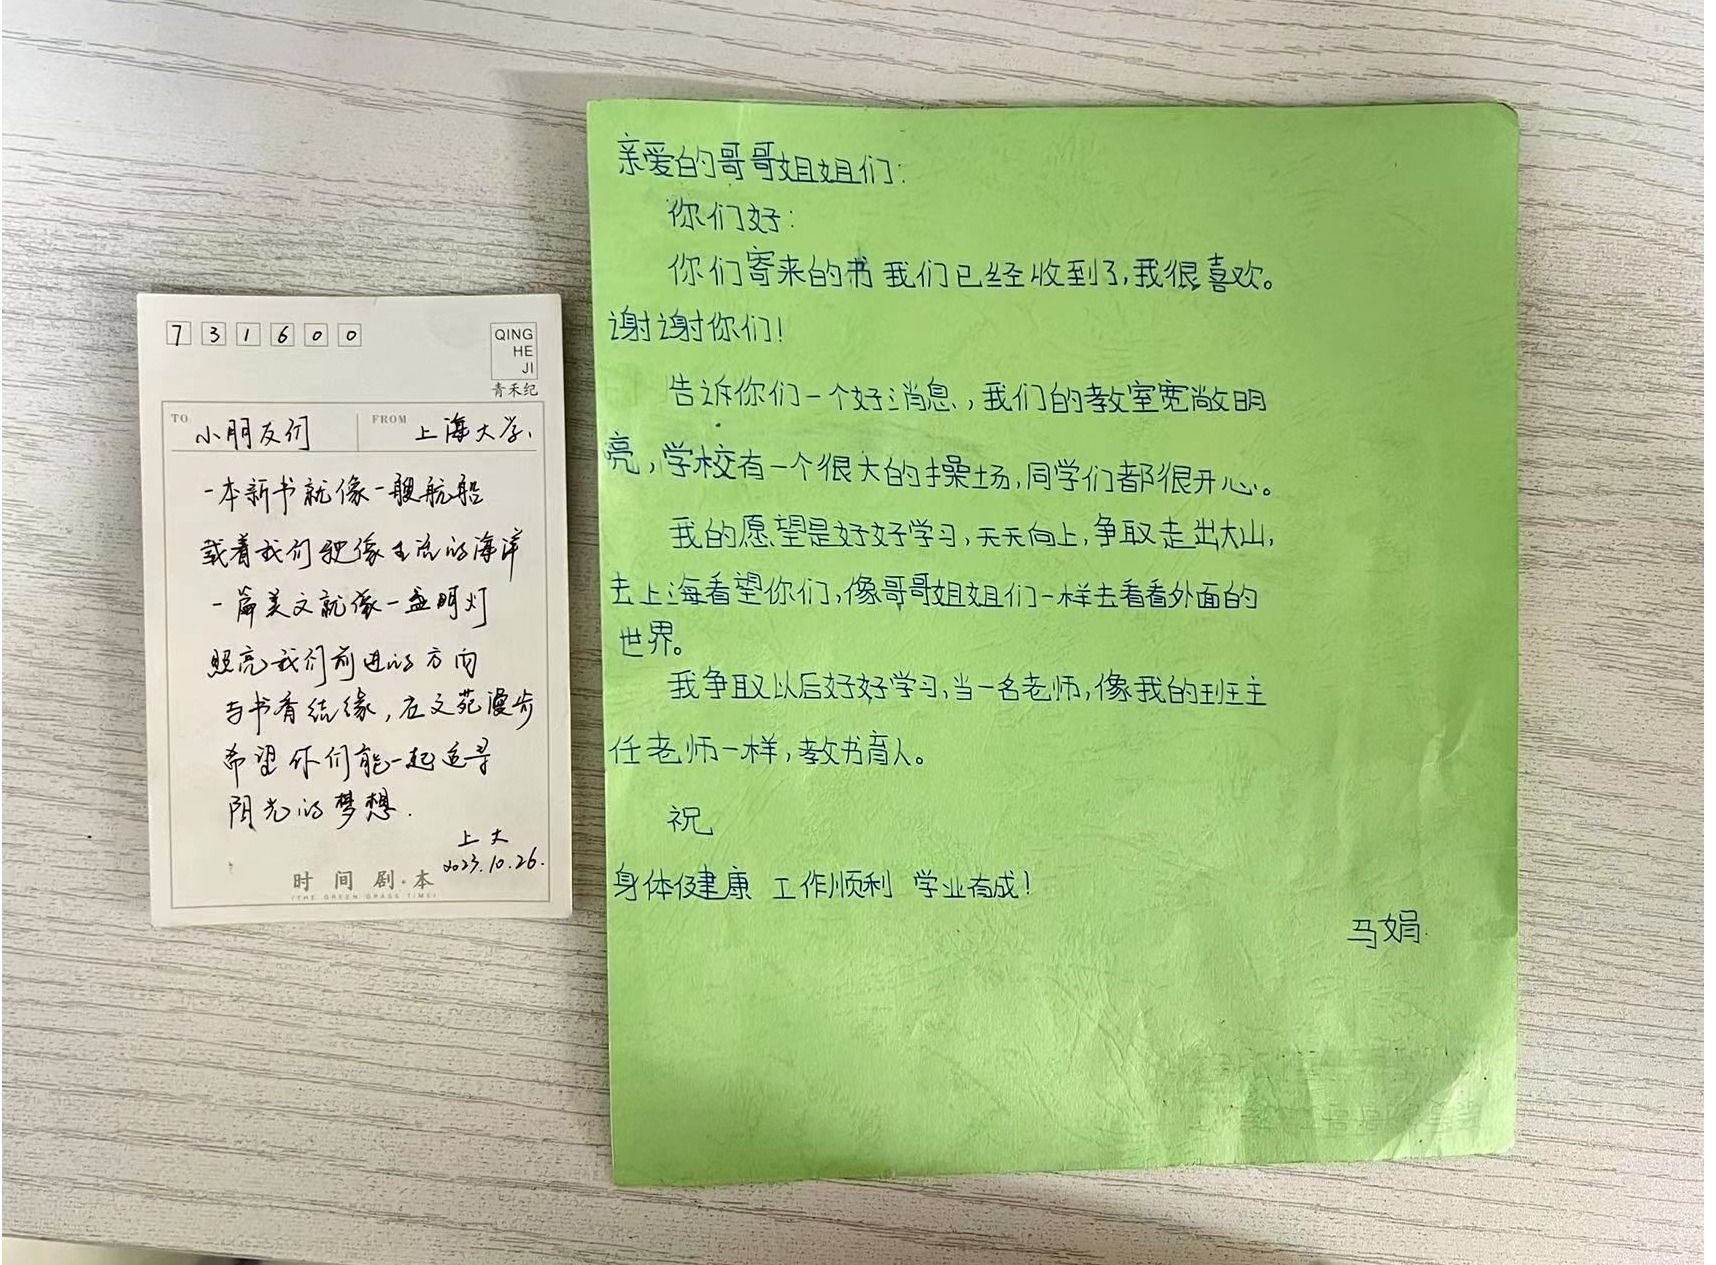 731600
QING
HE
JI
青禾纪
TO 小朋友们 FROM 上海大学.
一本新书就像一艘航船
载着我们驶像生活的海洋
一篇美文就像一盏明灯
照亮我们前进的方向
与书香结缘,在文苑漫步
希望你们能一起追寻
阳光的梦想.
上大
2023.10.26.
时间剧·本
(THE GREEN GRASS TIME)
亲爱的哥哥姐姐们:
你们好:
你们寄来的书我们已经收到了,我很喜欢。
谢谢你们!
告诉你们一个好消息,我们的教室宽敞明
亮,学校有一个很大的操场,同学们都很开心。
我的愿望是好好学习,天天向上,争取走出大山,
去上海看望你们,像哥哥姐姐们一样去看看外面的
世界。
我争取以后好好学习,当一名老师,像我的班主
任老师一样,教书育人。
祝
身体健康 工作顺利 学业有成!
马娟.